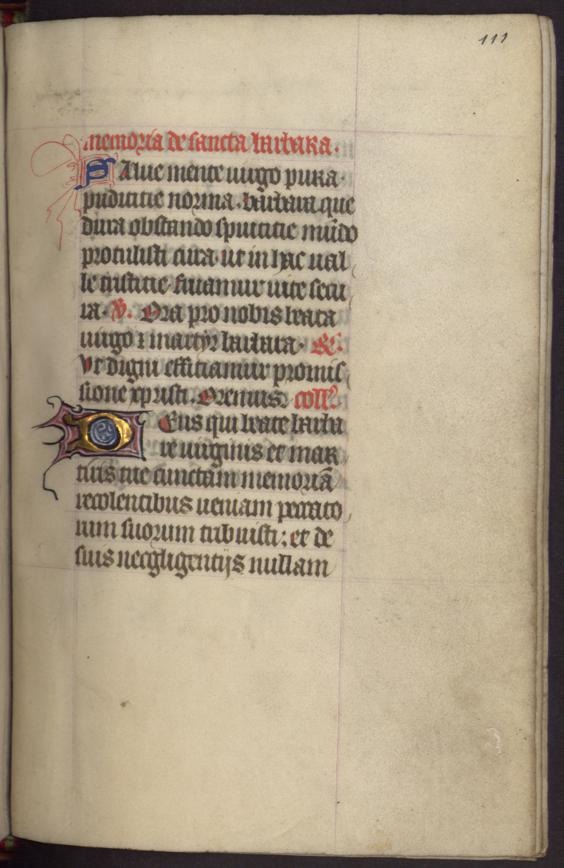 111
memoria de sancta barbara.
SAlue mente uirgo pura.
pudicitie norma. barbara que
dura obstando spurcitie mūdo
protulisti cura. ut in hac ual
le tristitie fruamur uite secu
ra. V̄. Ora pro nobis beata
uirgo ⁊ martyr barbara.
Vt digni efficiamur promis
sione xpristi. Oremus. coll'.
DEus qui beate barba
re uirginis et mar
tiris tue cunctam memoriā
recolentibus ueniam peccato
rum suorum tribuisti: et de
suis necgligentijs nullam